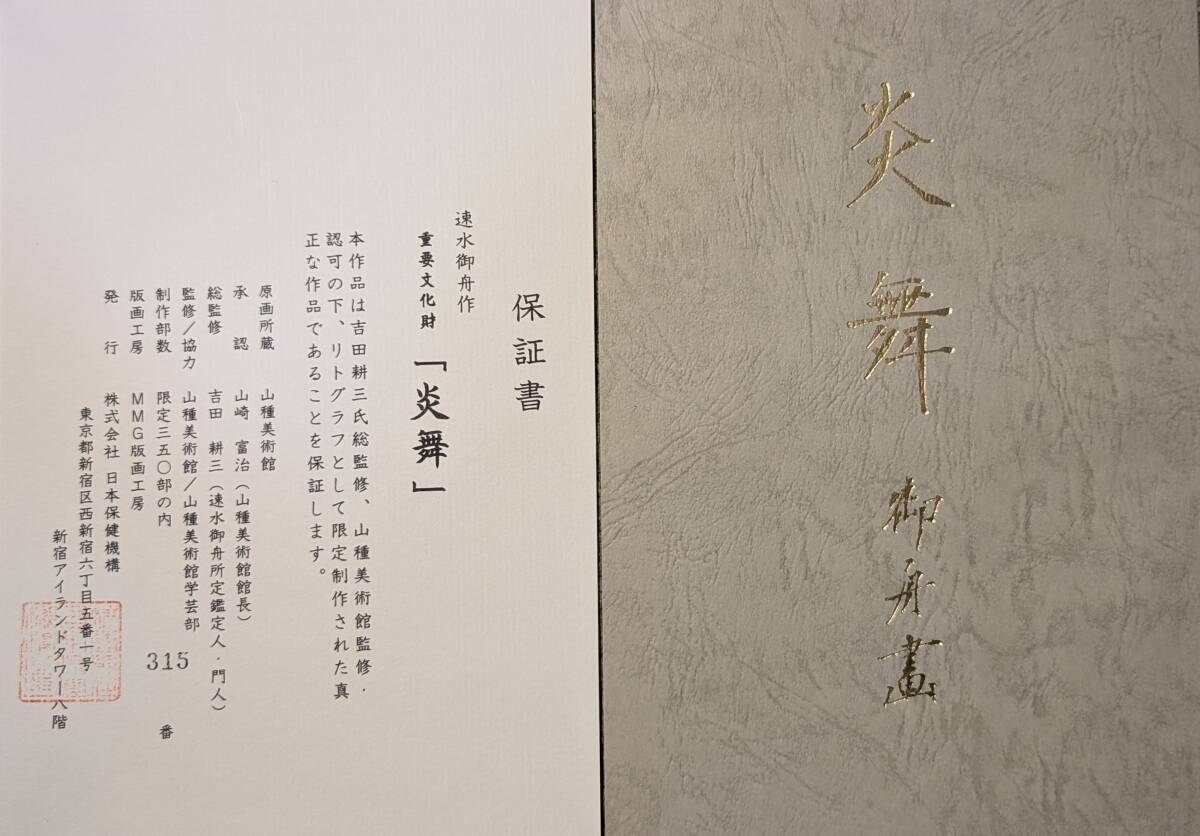 炎舞 御舟畫
保証書
速水御舟作
重要文化財 「炎舞」
本作品は吉田耕三氏総監修、山種美術館監修・
認可の下、リトグラフとして限定制作された真
正な作品であることを保証します。
原画所蔵 山種美術館
承認 山崎 富治(山種美術館館長)
総監修 吉田 耕三(速水御舟所定鑑定人・門人)
監修/協力 山種美術館/山種美術館学芸部
制作部数 限定三五〇部の内 315 番
版画工房 MMG版画工房
発行 株式会社 日本保健機構
東京都新宿区西新宿六丁目五番一号
新宿アイランドタワー八階